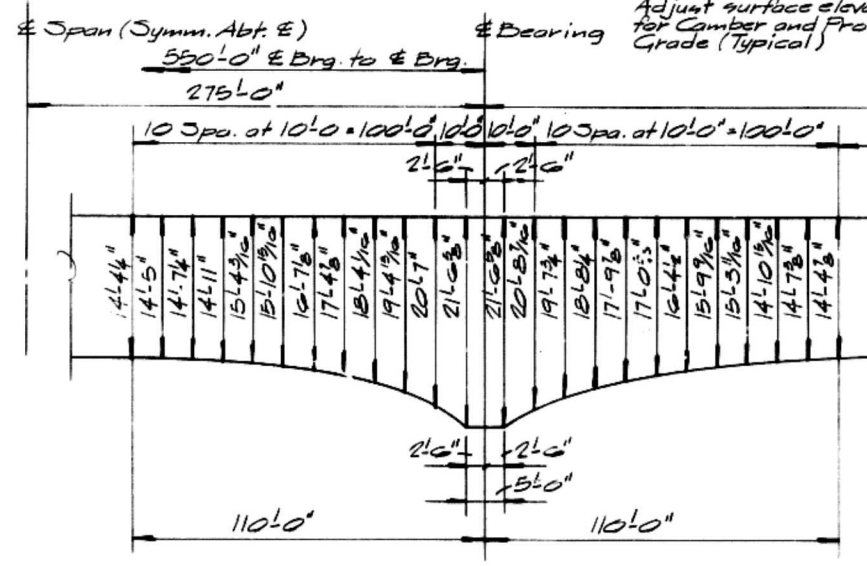 ℄ Span (Symm. Abt. ℄)
℄ Bearing
Adjust surface eleva
for Camber and Pro
Grade (Typical)
550'-0" ℄ Brg. to ℄ Brg.
275'-0"
10 Spa. at 10'-0 = 100'-0"
10'-0"
10'-0"
10 Spa. at 10'-0" = 100'-0"
2'-6"
2'-6"
14'-4¼"
14'-5"
14'-7¼"
14'-11"
15'-4 3/16"
15'-10 13/16"
16'-7⅛"
17'-4⅞"
18'-4 1/16"
19'-4 13/16"
20'-7"
21'-6⅜"
21'-6⅜"
20'-8 7/16"
19'-7¾"
18'-8¼"
17'-9⅞"
16'-4½"
15'-9 9/16"
15'-3 11/16"
14'-10 15/16"
14'-7⅞"
14'-4⅞"
2'-6"
2'-6"
5'-0"
110'-0"
110'-0"